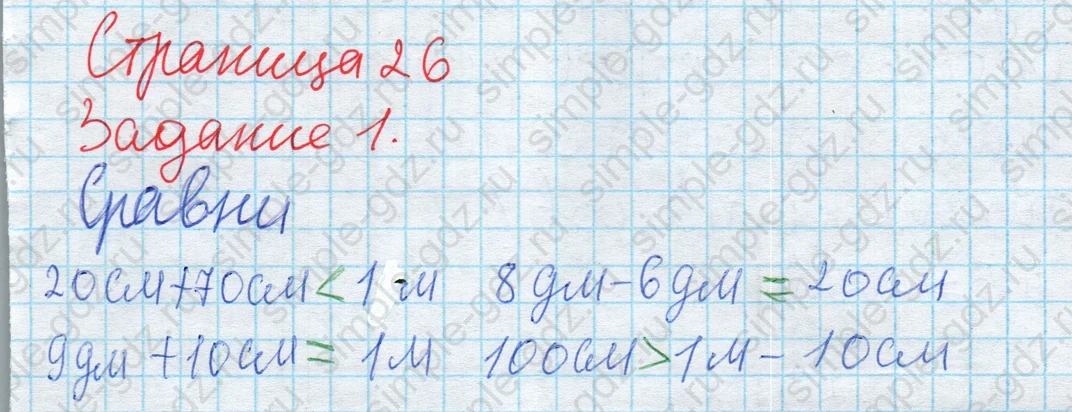 Страница 26
Задание 1.
Сравни
20см+70см<1 м 8дм-6дм=20см
9дм+10см=1м 100см>1м-10см
simple-gdz.ru